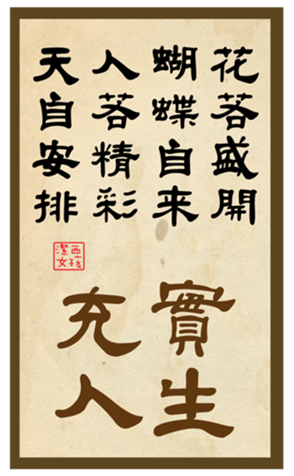 花若盛開
蝴蝶自来
人若精彩
天自安排
充實
人生